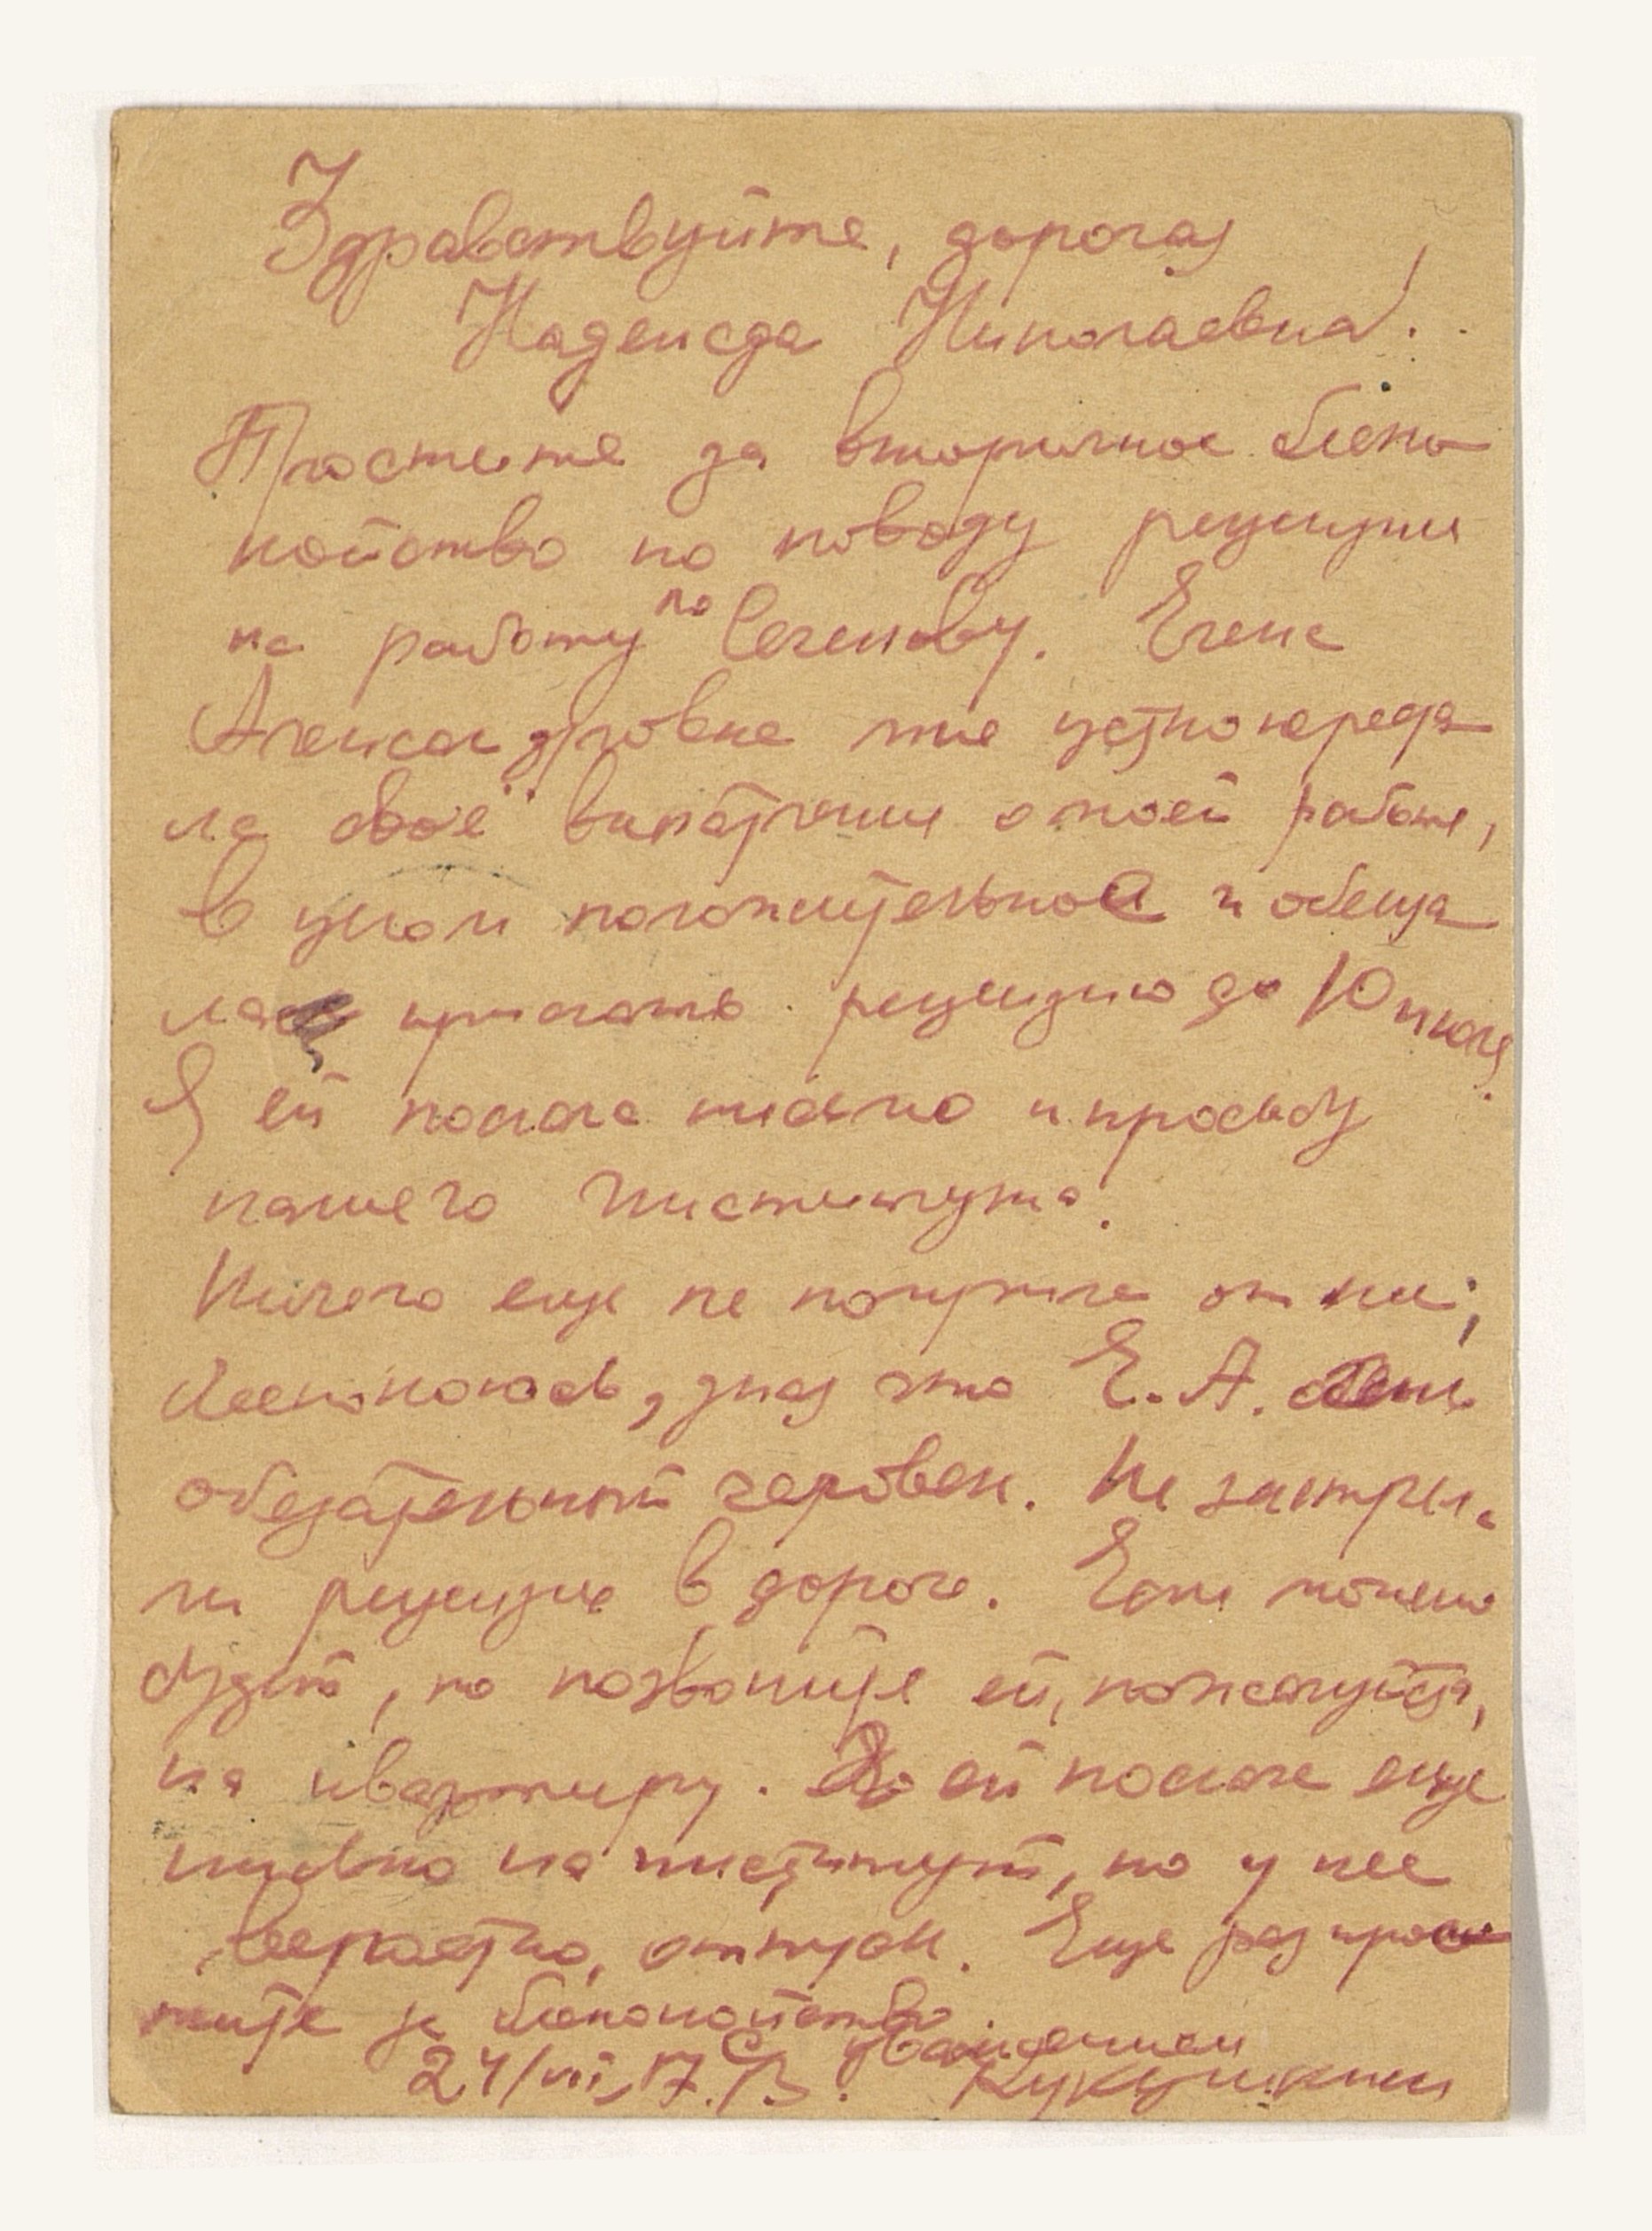 Здравствуйте, дорогая
Надежда Николаевна!
Простите за вторичное беспо-
койство по поводу рецензии
на работу по Сеченову. Елена
Александровна мне устно переда-
ла своё впечатление о моей работе,
в целом положительное и обеща-
ла прислать рецензию до 10 июля.
Я ей послала письмо и просьбу
нашего Института.
Ничего еще не получила от них;
беспокоюсь, зная что Е. А.
обязательный человек. Не застря-
ла ли рецензия в дороге. Если можно
будет, то позвоните ей, пожалуйста,
на квартиру. Я ей послала еще
письмо на институт, но у нее
вероятно, отпуск. Еще раз прос-
тите за беспокойство.
С уважением
24/VII, 17. В. Кукушкин